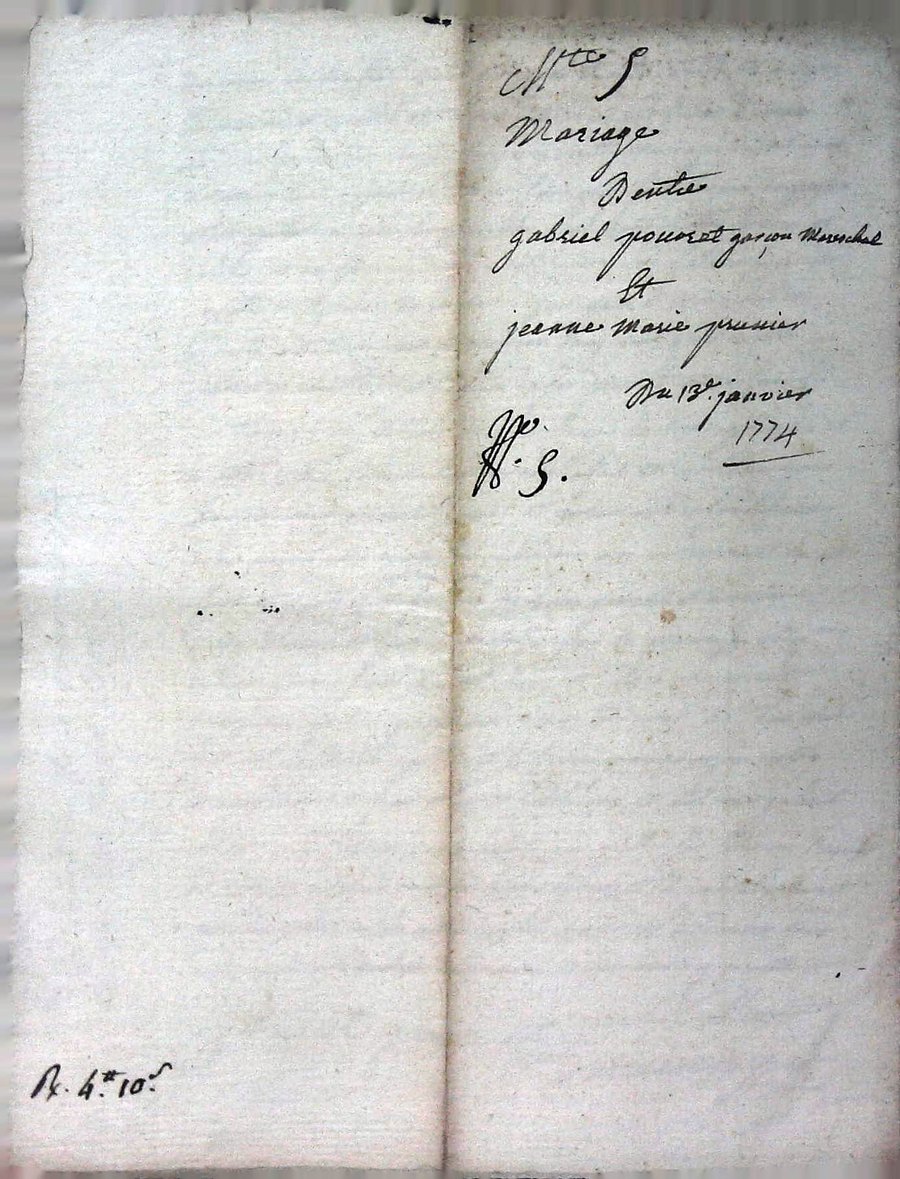 M.te 5
Mariage
Dentre
gabriel pouorat garçon Mareschal
Et
jeanne Marie prunier
Du 13e. janvier
1774
N.o 5.
R. 4.# 10.s